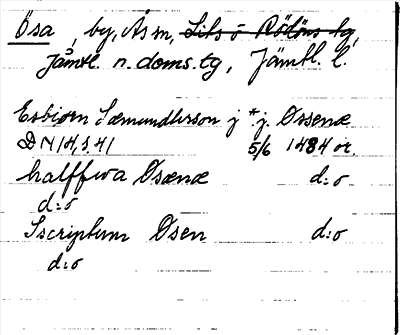 Ösa, by, Ås sn, Lits o Rödöns tg,
Jämtl. n. doms. tg, Jämtl. l.
Esbiørn Sæmundsson j *j Øssenæ
DN 14, s. 41 5/6 1484 or.
halffwa Øsænæ d:o
d:o
Sscriptum Øsen d:o
d:o